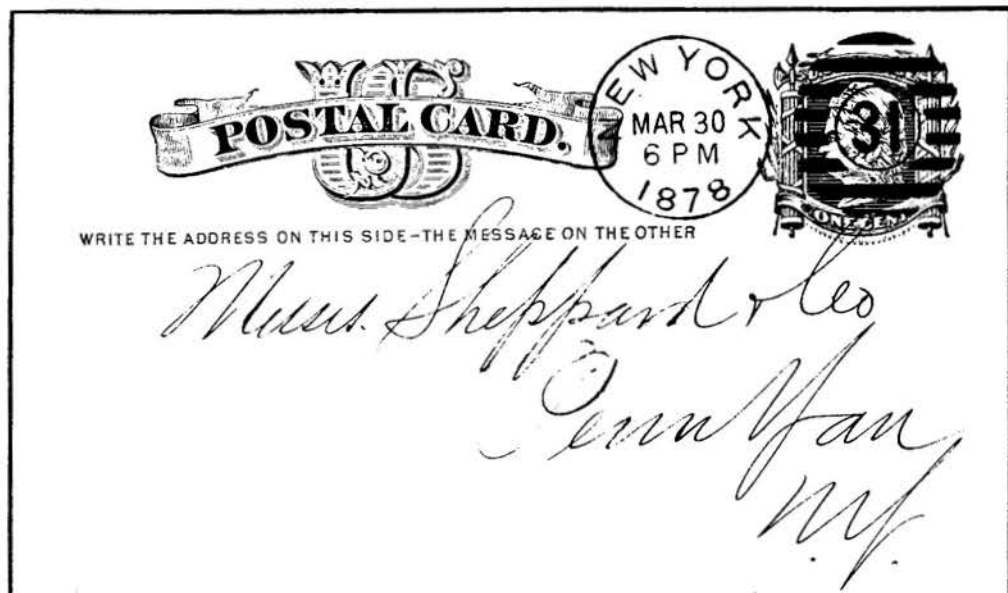 US
POSTAL CARD.
NEW YORK
MAR 30
6 PM
1878
31
ONE CENT
WRITE THE ADDRESS ON THIS SIDE-THE MESSAGE ON THE OTHER
Messrs. Sheppard & Co
Penn Yan
N.Y.